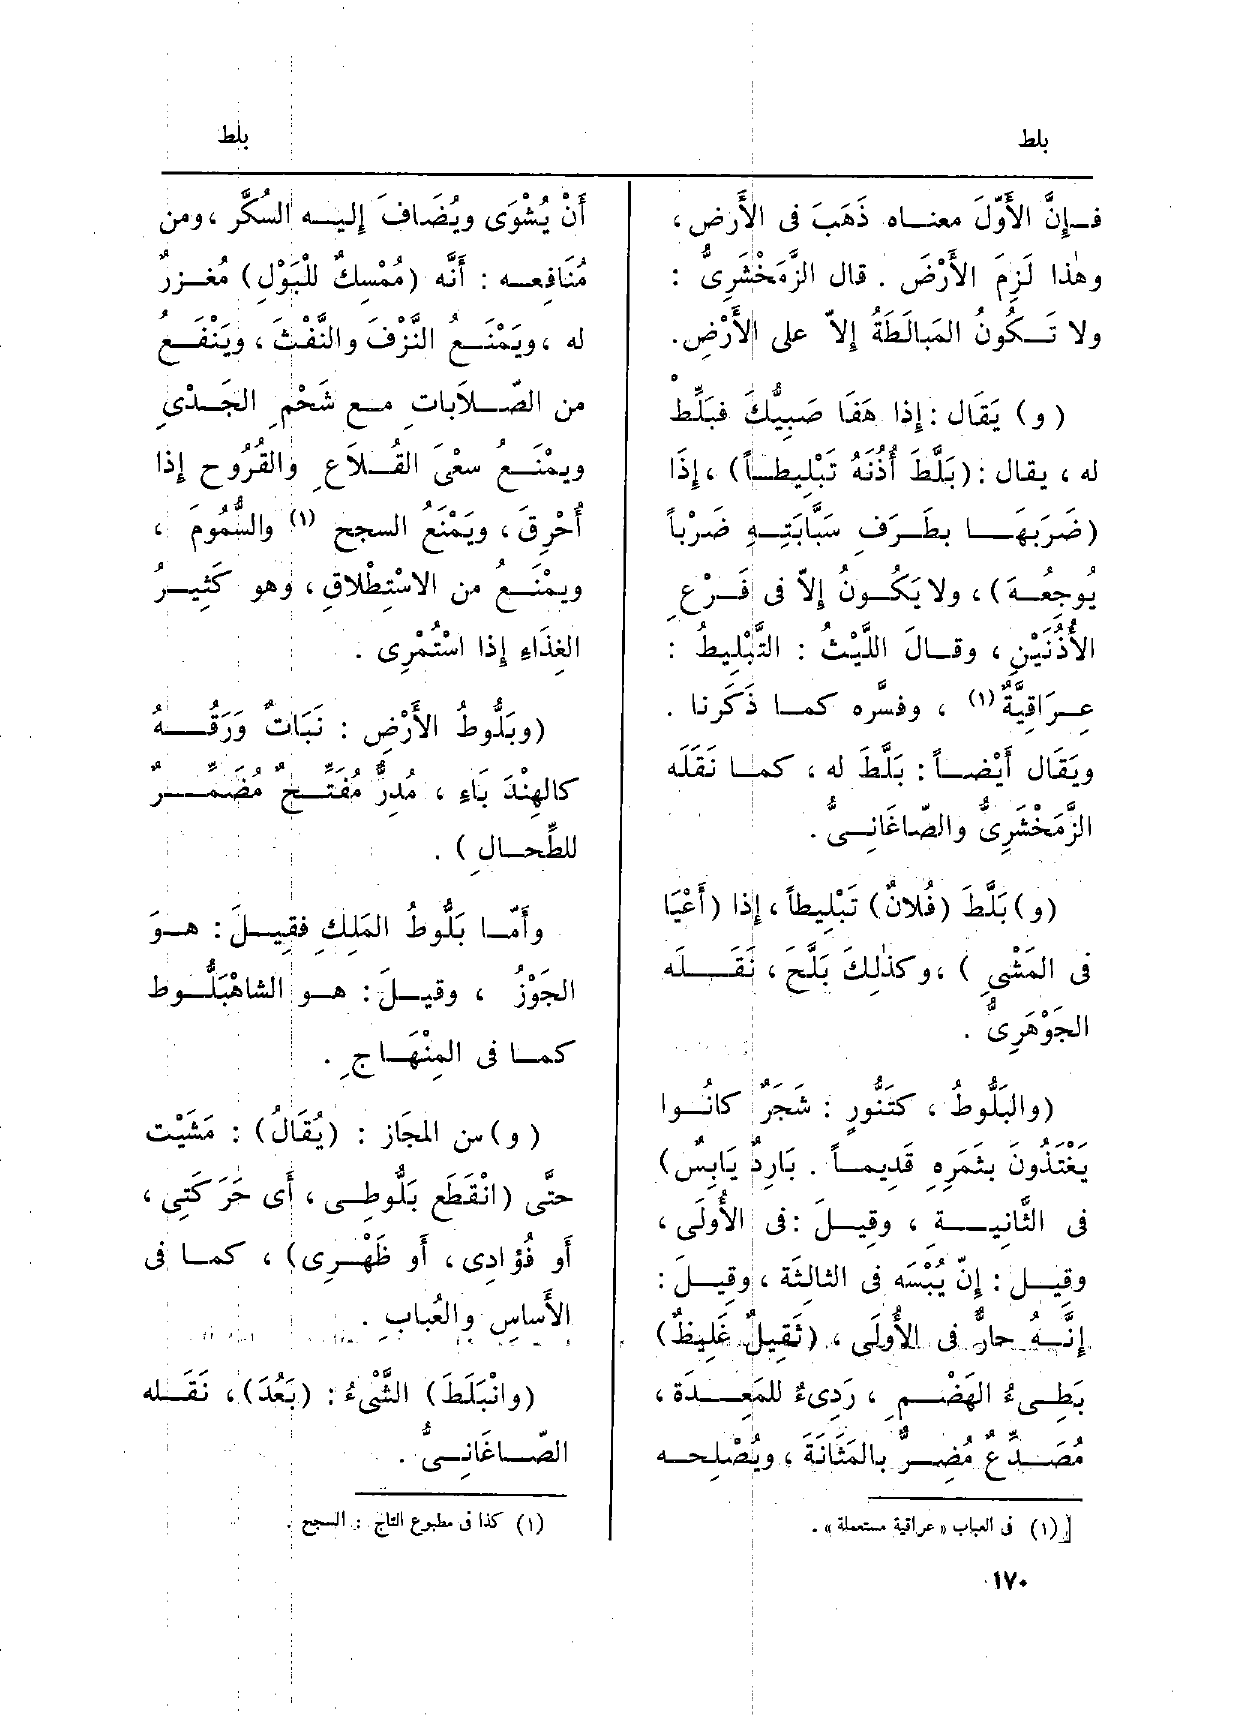 بلط
بلط
فـإنَّ الأَوّلَ معنـاه ذَهَبَ فى الأَرض ،
وهٰذا لَزِمَ الأَرْضَ . قال الزَّمَخْشَرِىُّ :
ولا تَـكُونُ المُبالَطَةُ إِلاّ على الأَرْضِ.
( و ) يُقَال : إِذا هَفَا صَبِيُّكَ فبَلِّطْ
له ، يقال : (بَلَّطَ أُذُنَهُ تَبْلِيطـاً) ، إِذَا
(ضَرَبَهـا بطَرَفِ سَبَّابَتِـهِ ضَرْباً
يُوجِعُـهَ) ، ولا يَكُونُ إِلاّ فى فَرْعِ
الأُذُنَيْنِ ، وقـالَ اللَّيْثُ : التَّبْلِيطُ :
عِرَاقِيَّةٌ (١) ، وفسَّره كمـا ذَكَرنا .
ويُقَال أَيْضـاً : بَلَّطَ له ، كمـا نَقَلَه
الزَّمَخْشَرِىُّ والصّاغَانِـىُّ .
(و) بَلَّطَ (فُلانٌ) تَبْلِيطاً ، إِذا (أَعْيَا
فى المَشْىِ ) ، وكذٰلِكَ بَلَّحَ ، نَقَـلَه
الجَوْهَرِىُّ .
(والبَلُّوطُ ، كتَنُّورٍ : شَجَرٌ كانُـوا
يَغْتَذُونَ بثَمَرِهِ قَدِيمـاً . بَارِدٌ يَابِسٌ)
فى الثَّانِيـة ، وقِيـلَ : فى الأُولَى ،
وقِيـل : إِنّ يُبْسَه فى الثالثة ، وقِيـلَ :
إِنَّـهُ حارٌّ فى الأُولَى ، (ثَقِيلٌ غَلِيظٌ)
بَطِـىءُ الهَضْـمِ ، رَدِىءٌ للمَعِـدَة ،
مُصَـدِّعٌ مُضِـرٌّ بالمَثَانَة ، ويُصْلِحـه
[(١) فى العباب «عراقية مستعملة» .
أَنْ يُشْوَى ويُضَافَ إِليـه السُّكَّر ، ومن
مَنَافِعـه : أَنَّه (مُمْسِكٌ للْبَوْلِ) مُغـزِرٌ
له ، ويَمْنَـعُ النَّزْفَ والنَّفْثَ ، ويَنْفَـعُ
من الصَّـلَابَاتِ مـع شَحْمِ الجَـدْىِ
ويمْنَـعُ سعْىَ القُـلاَعِ والقُرُوحِ إِذا
أُحْرِقَ ، ويَمْنَعُ السجح (١) والسُّمُومَ ،
ويمْنَـعُ من الاسْتِطْلاقِ ، وهو كَثِيـرُ
الغِذَاءِ إِذا اسْتُمْرِى .
(وبَلُّوطُ الأَرْضِ : نَبَاتٌ وَرَقُـهُ
كالهِنْدَبَاءِ ، مُدِرٌّ مُفَتِّـحٌ مُضَمِّـرٌ
للطِّحـالِ ) .
وأَمّـا بَلُّوطُ المَلِكِ فقِيـلَ : هـو
الجَوْزُ ، وقيـلَ : هـو الشاهْبَلُّوط
كمـا فى المِنْهـاجِ .
( و ) من المجاز : (يُقَالُ) : مَشَيْت
حتَّى (انْقَطَع بَلُّوطِـى ، أَى حَرَكتِى ،
أَو فُؤادِى ، أَو ظَهْـرِى) ، كمـا فى
الأَساسِ والعُبابِ .
(وانْبَلَطَ) الشَّىْءُ : (بَعُدَ) ، نَقَـلَه
الصّـاغَانِـىُّ .
(١) كذا فى مطبوع التاج : السجح .
١٧٠